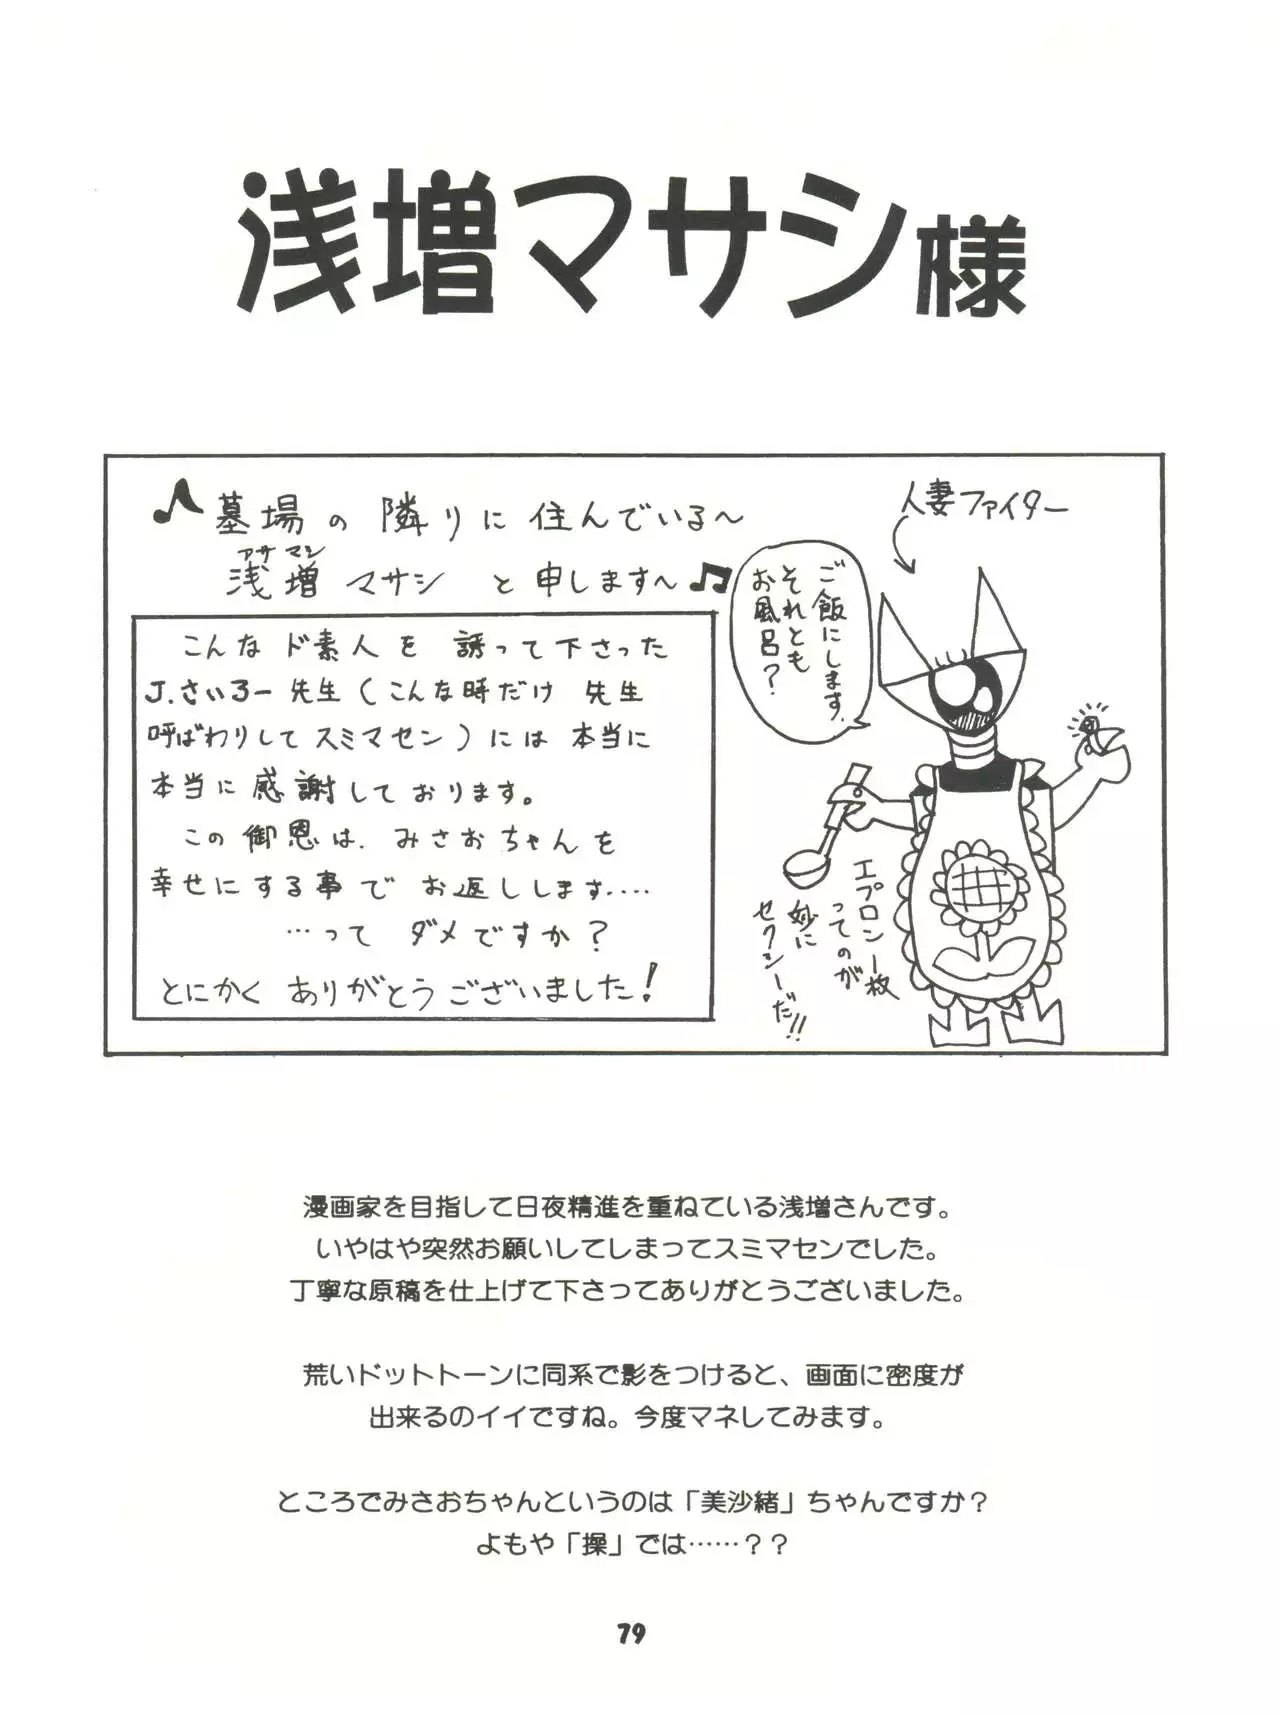 浅増マサシ様
♪墓場の隣りに住んでいる〜
アサ マシ
浅増マサシ と申します〜♫
こんなド素人を誘って下さった
J.さいろー先生(こんな時だけ先生
呼ばわりしてスミマセン)には本当に
本当に感謝しております。
この御恩は、みさおちゃんを
幸せにする事でお返しします.....
…ってダメですか?
とにかくありがとうございました!
人妻ファイター
ご飯にします、
それとも
お風呂?
エプロン一枚
ってのが
妙に
セクシーだ!!
漫画家を目指して日夜精進を重ねている浅増さんです。
いやはや突然お願いしてしまってスミマセンでした。
丁寧な原稿を仕上げて下さってありがとうございました。
荒いドットトーンに同系で影をつけると、画面に密度が
出来るのイイですね。今度マネしてみます。
ところでみさおちゃんというのは「美沙緒」ちゃんですか?
よもや「操」では……??
79